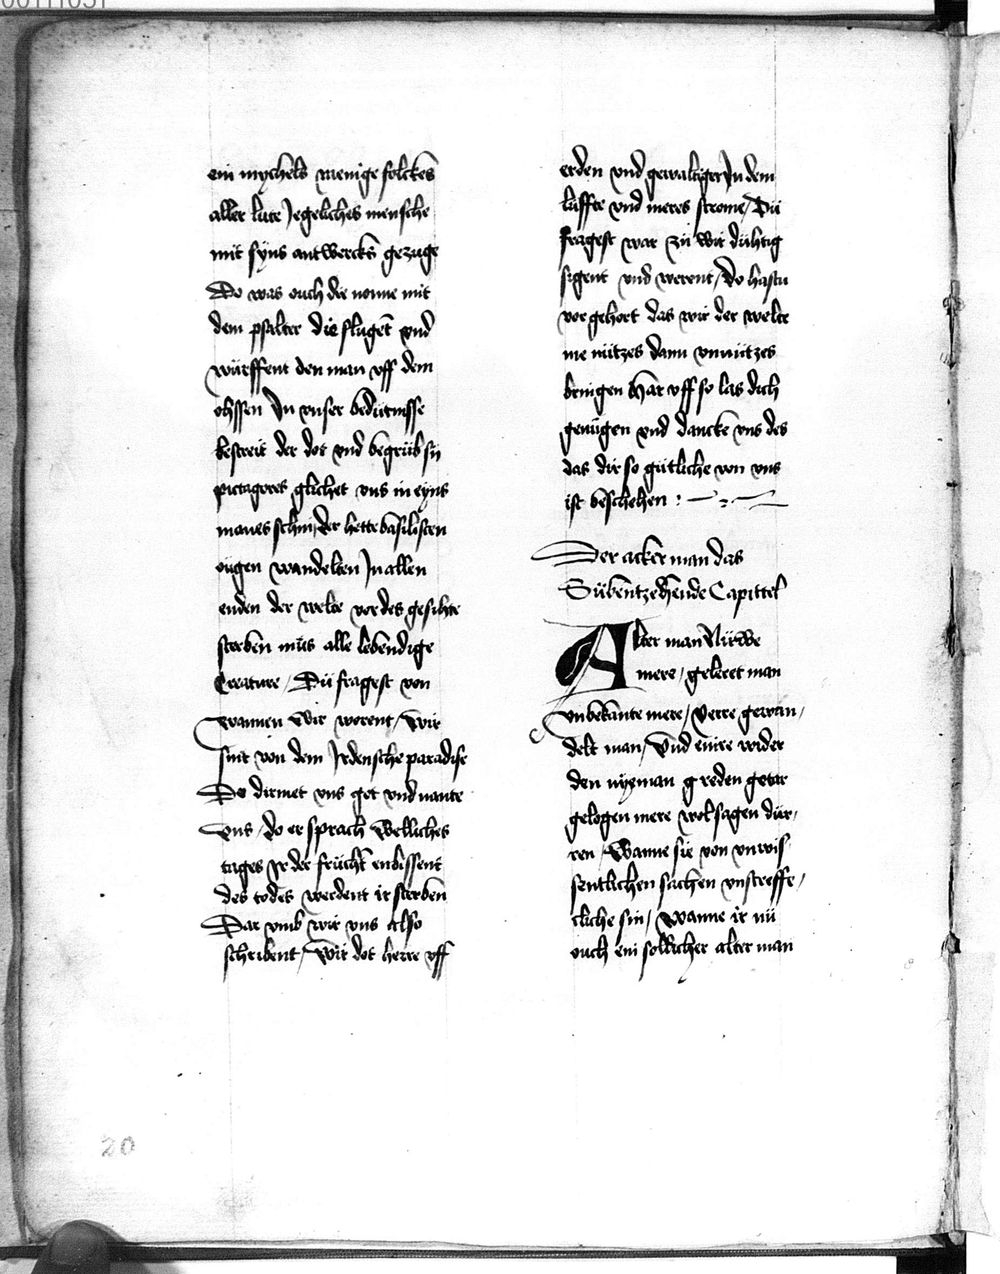 ein mychels menige folckes
aller lute Jegeliches mensche
mit syns antwercks gezuge
Do was ouch die nonne mit
dem psalter die slugent vnd
würffent den man vff dem
ohssen In vnser bedütnisse
bestreit der dot vnd begrüb sü
pictagores glichet vns in eyns
manes schin, der hette basiliscen
oügen wandelten In allen
enden der welte vor des gesihte
sterben müs alle lebendige
Creature / Dü fragest von
wannen wir werent / wir
sint von dem Irdensche paradise
Do dirmet vns got vnd nante
vns / do er sprach welliches
tages ir der früchte enbissent
des todes werdent ir sterben
Dar vmb wir vns also
schribent / Wir dot herre vff
erden vnd gewaltiger In dem
lüffte vnd meres strome / Dü
fragest war zü wir dühtig
sigent vnd werent / do hastu
vor gehort das wir der welte
me nützes dann vnnützes
bringen Har vff so las dich
genügen vnd dancke vns des
das dir so gütliche von vns
ist beschehen :
Der acker man das
Sübentzehende Capittel
Alter man Nüwe
mere / geleret man
vnbekante mere / verre gewan,
delt man / Vnd einre wider
den nyeman g reden getar
gelogen mere wol sagen dür,
ren / Wanne sie von vnwis
sentlichen sachen vnstreffe,
cliche sin / wanne ir nü
ouch ein sollicher alter man
20